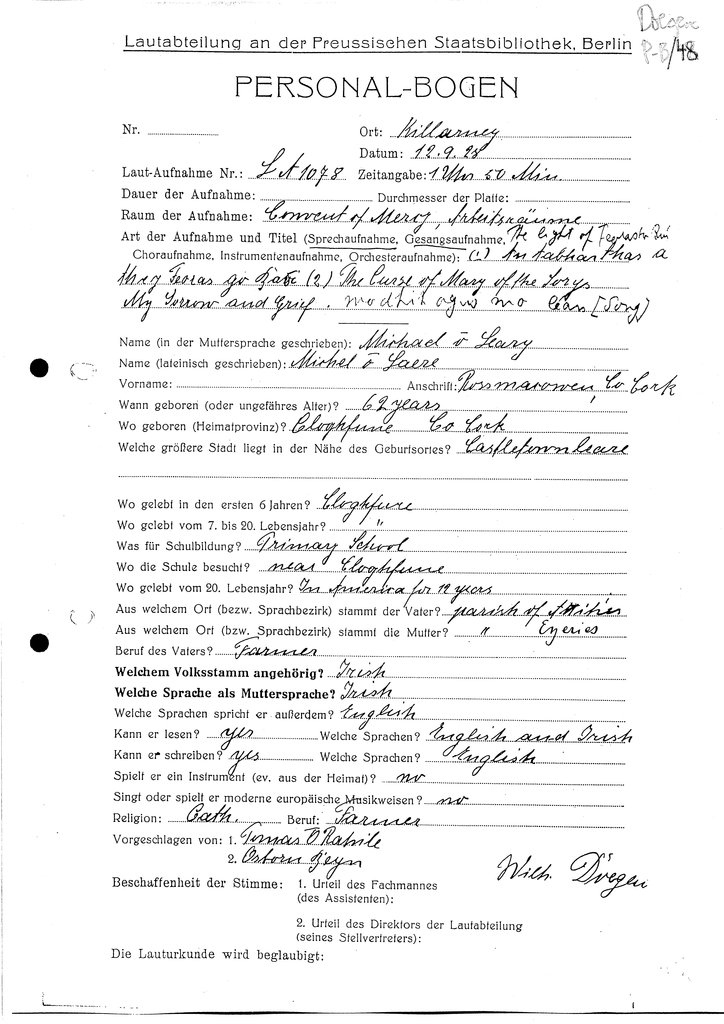 Doegen
P-B/48
Lautabteilung an der Preussischen Staatsbibliothek, Berlin
PERSONAL-BOGEN
Nr. Ort: Killarney
Datum: 12.9.28
Laut-Aufnahme Nr.: LA 1078 Zeitangabe: 12 Uhr 50 Min.
Dauer der Aufnahme: Durchmesser der Platte:
Raum der Aufnahme: Convent of Mercy, Arbeitsräume
Art der Aufnahme und Titel (Sprechaufnahme, Gesangsaufnahme, The light of
Choraufnahme, Instrumentenaufnahme, Orchesteraufnahme): (1) An tabhar thas a
thug go (2) The Curse of Mary of the
My Sorrow and Grief. mo [Song]
Name (in der Muttersprache geschrieben): Michael ō Leary
Name (lateinisch geschrieben): Michel ō Laere
Vorname: Anschrift: Rossmacowen, Co Cork
Wann geboren (oder ungefähres Alter)? 62 years
Wo geboren (Heimatprovinz)? Cloghfune Co Cork
Welche größere Stadt liegt in der Nähe des Geburtsortes? Castletownbeare
Wo gelebt in den ersten 6 Jahren? Cloghfune
Wo gelebt vom 7. bis 20. Lebensjahr? "
Was für Schulbildung? Primary School
Wo die Schule besucht? near Cloghfune
Wo gelebt vom 20. Lebensjahr? In America for 12 years
Aus welchem Ort (bezw. Sprachbezirk) stammt der Vater? parish of
Aus welchem Ort (bzw. Sprachbezirk) stammt die Mutter? " Eyeries
Beruf des Vaters? Farmer
Welchem Volksstamm angehörig? Irish
Welche Sprache als Muttersprache? Irish
Welche Sprachen spricht er außerdem? English
Kann er lesen? yes Welche Sprachen? English and Irish
Kann er schreiben? yes Welche Sprachen? English
Spielt er ein Instrument (ev. aus der Heimat)? no
Singt oder spielt er moderne europäische Musikweisen? no
Religion: Cath. Beruf: Farmer
Vorgeschlagen von: 1. Tomas O Rahile
2. Osborn Bergin
Beschaffenheit der Stimme: 1. Urteil des Fachmannes
(des Assistenten):
Wilh. Doegen
2. Urteil des Direktors der Lautabteilung
(seines Stellvertreters):
Die Lauturkunde wird beglaubigt: